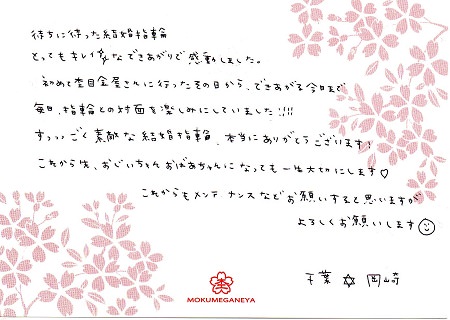 待ちに待った結婚指輪
とってもキレイなできあがりで感動しました。
初めて杢目金屋さんに行ったその日から、できあがる今日まで
毎日、指輪との対面を楽しみにしていました!!!!
すっっごく素敵な結婚指輪、本当にありがとうございます!
これから先、おじいちゃんおばあちゃんになっても一生大切にします♡
これからもメンテナンスなどお願いすると思いますが
よろしくお願いします☺
千葉 ✡ 岡崎
MOKUMEGANEYA